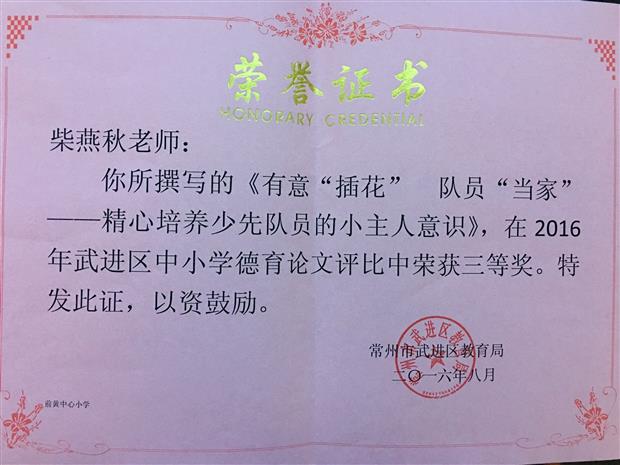 荣誉证书
HONORARY CREDENTIAL
柴燕秋老师：
你所撰写的《有意“插花”　队员“当家”
——精心培养少先队员的小主人意识》，在 2016
年武进区中小学德育论文评比中荣获三等奖。特
发此证，以资鼓励。
常州市武进区教育局
二〇一六年八月
前黄中心小学